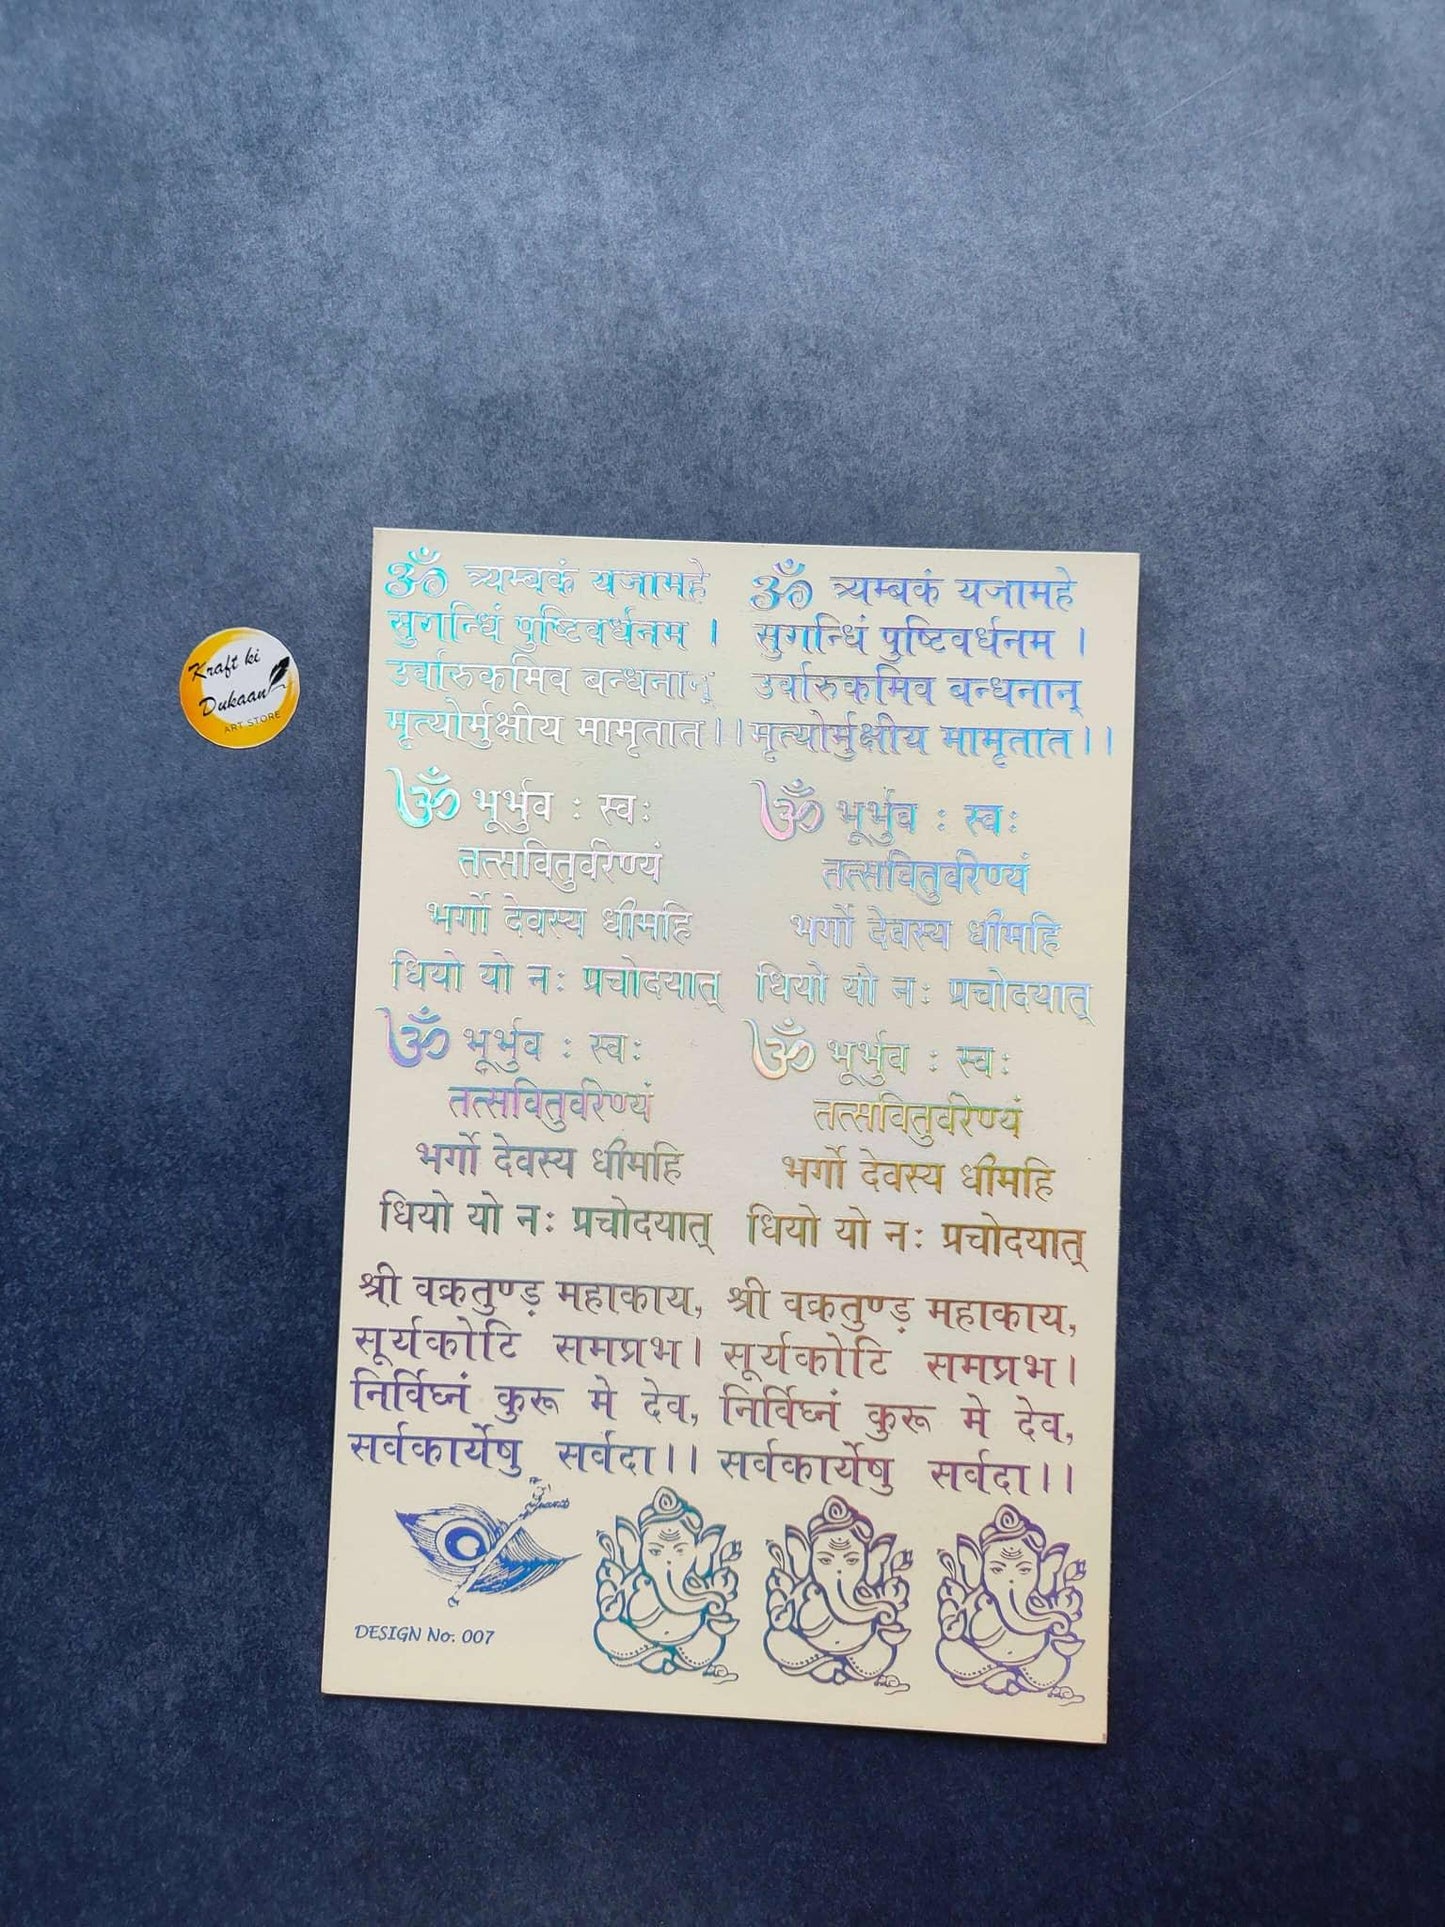 Kraft ki
Dukaan
ART STORE
ॐ त्र्यम्बकं यजामहे
सुगन्धिं पुष्टिवर्धनम ।
उर्वारुकमिव बन्धनान्
मृत्योर्मुक्षीय मामृतात।।
ॐ त्र्यम्बकं यजामहे
सुगन्धिं पुष्टिवर्धनम ।
उर्वारुकमिव बन्धनान्
मृत्योर्मुक्षीय मामृतात।।
ॐ भूर्भुव : स्व:
तत्सवितुर्वरेण्यं
भर्गो देवस्य धीमहि
धियो यो न: प्रचोदयात्
ॐ भूर्भुव : स्व:
तत्सवितुर्वरेण्यं
भर्गो देवस्य धीमहि
धियो यो न: प्रचोदयात्
ॐ भूर्भुव : स्व:
तत्सवितुर्वरेण्यं
भर्गो देवस्य धीमहि
धियो यो न: प्रचोदयात्
ॐ भूर्भुव : स्व:
तत्सवितुर्वरेण्यं
भर्गो देवस्य धीमहि
धियो यो न: प्रचोदयात्
श्री वक्रतुण्ड़ महाकाय,
सूर्यकोटि समप्रभ।
निर्विघ्नं कुरू मे देव,
सर्वकार्येषु सर्वदा।।
श्री वक्रतुण्ड़ महाकाय,
सूर्यकोटि समप्रभ।
निर्विघ्नं कुरू मे देव,
सर्वकार्येषु सर्वदा।।
DESIGN No. 007